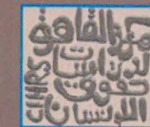 مركز القاهرة
لدراسات
حقوق
الإنسان
CIHRS